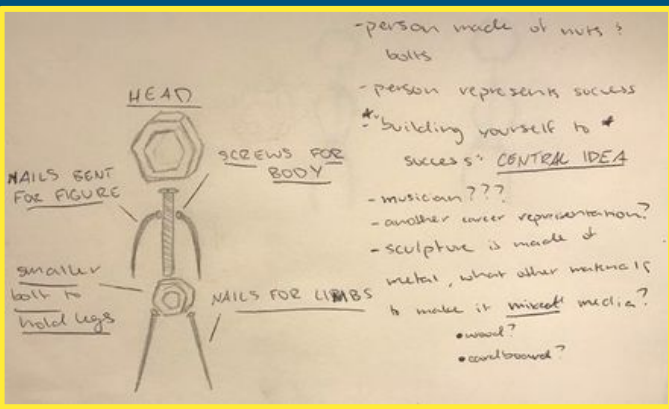 HEAD
SCREWS FOR
BODY
NAILS BENT
FOR FIGURE
smaller
bolt to
hold legs
NAILS FOR LIMBS
-person made of nuts &
bolts
-person represents success
* "building yourself to *
success" CENTRAL IDEA
- musician???
- another career representation?
- sculpture is made of
metal, what other materials
to make it mixed media?
• wood?
• cardboard?